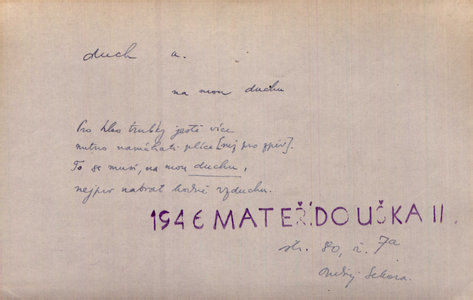 duch a.
na mou duchu
Pro hlas trubky ještě více
nutno namáhati plíce [nej pro zpěv].
To se musí, na mou duchu,
nejprv nabrat hodně vzduchu.
1946 MATEŘÍDOUŠKA II.
str. 80, č. 7a
Ondřej Sekora.